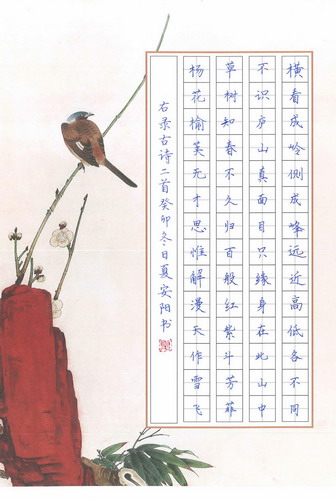 横看成岭侧成峰远近高低各不同
不识庐山真面目只缘身在此山中
草树知春不久归百般红紫斗芳菲
杨花榆荚无才思惟解漫天作雪飞
右录古诗二首癸卯冬日夏安阳书